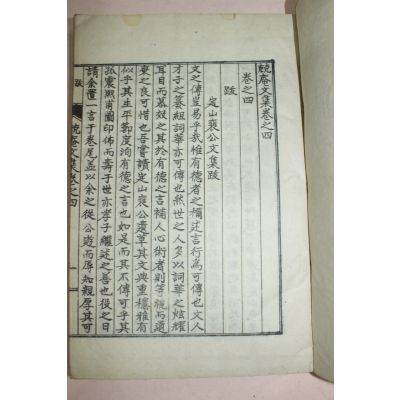 兢庵文集卷之四
卷之四
跋
定山裵公文集跋
文之傳豈易乎哉惟有德者之稱述言行為可傳也文人
才子之纂組詞華亦可傳也然世之人多以詞華之炫耀
耳目而慕效之其於有德之言補人心術者則等視而遺
棄之良可惜也吾嘗讀定山裵公遺草其文典重穩雅有
似乎其生平節度洵有德之言也如是而其不傳可乎其
孤震熙甫圖印佈而壽于世亦孝子繼述之善也後之日
請余置一言于卷尾盖以余之從公遊而厚知親厚其可
跋 兢庵文集卷之四 一